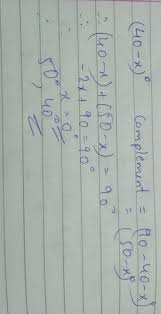 (40-x)° Complement = (90-40-x)°
= (50-x)°
∴ (40-x)+(50-x) = 90°
∴ -2x + 90 = 90°
∴ x = 0°
50°, 40°